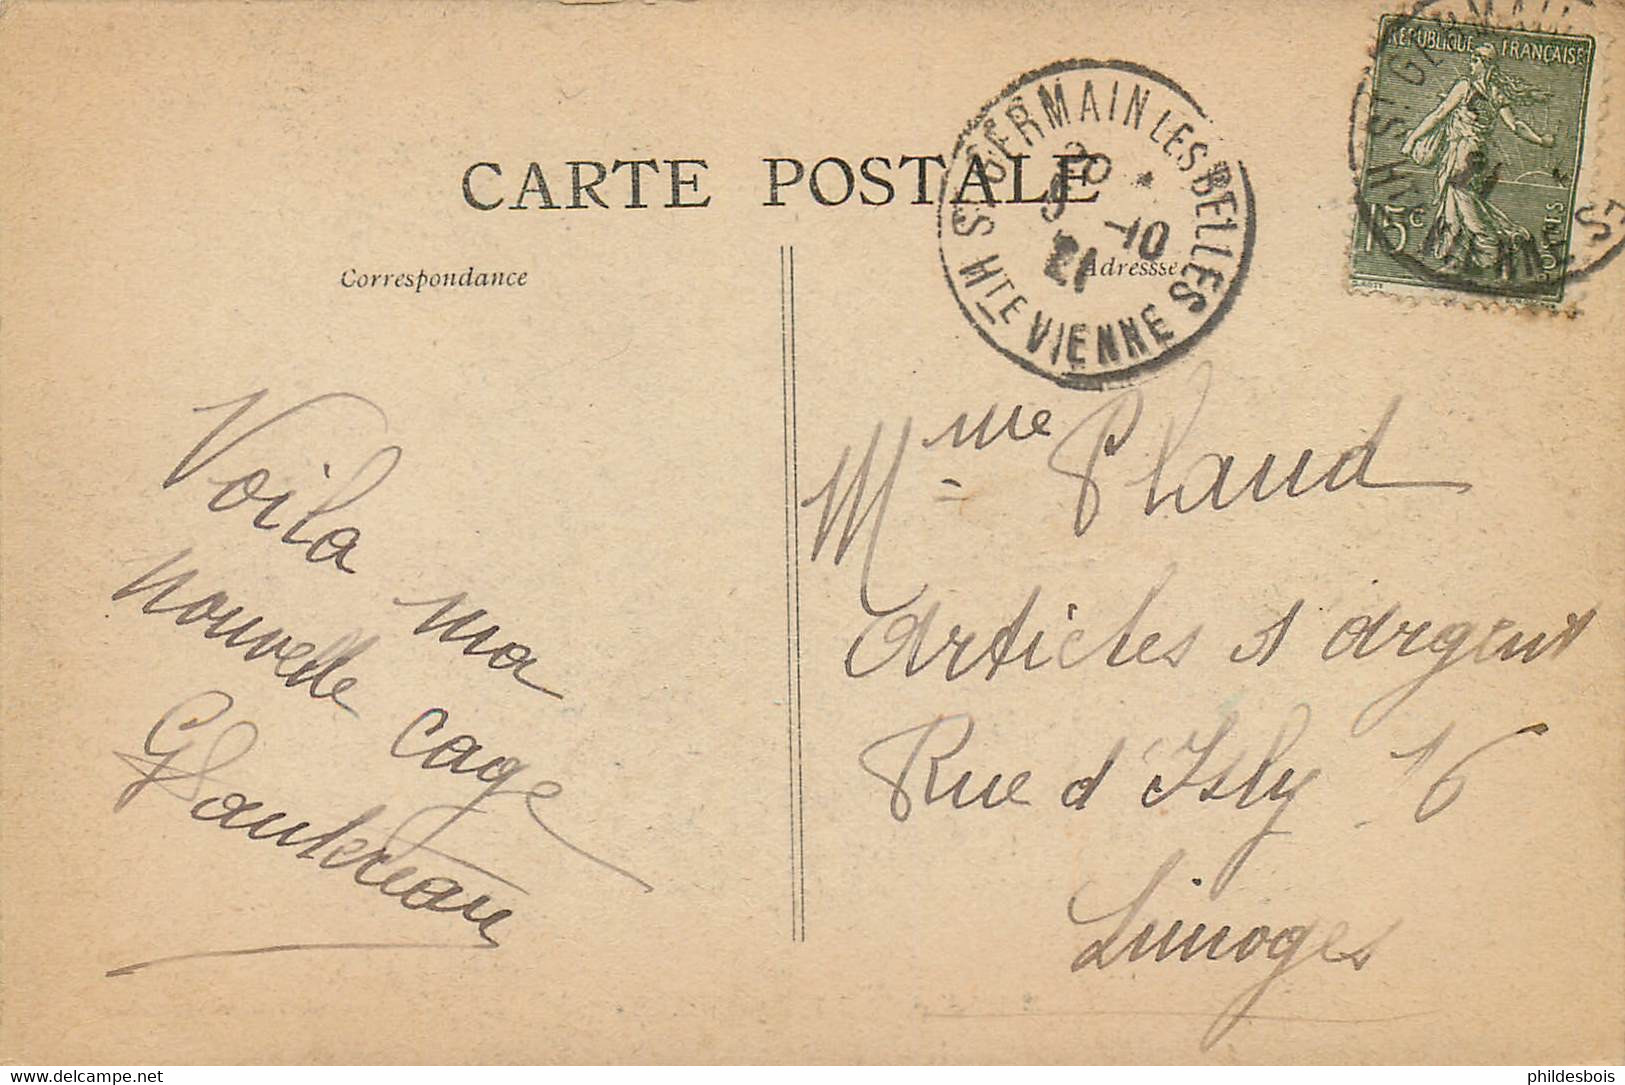 CARTE POSTALE
Correspondance
Adressse
ST GERMAIN LES BELLES
20
9 -10
21
HTE VIENNE
RÉPUBLIQUE FRANÇAISE
15c
POSTES
Voila ma
nouvelle cage
Gautereau
Mme Plaud
Articles d'argent
Rue d'Isly 16
Limoges
delcampe.net
phildesbois